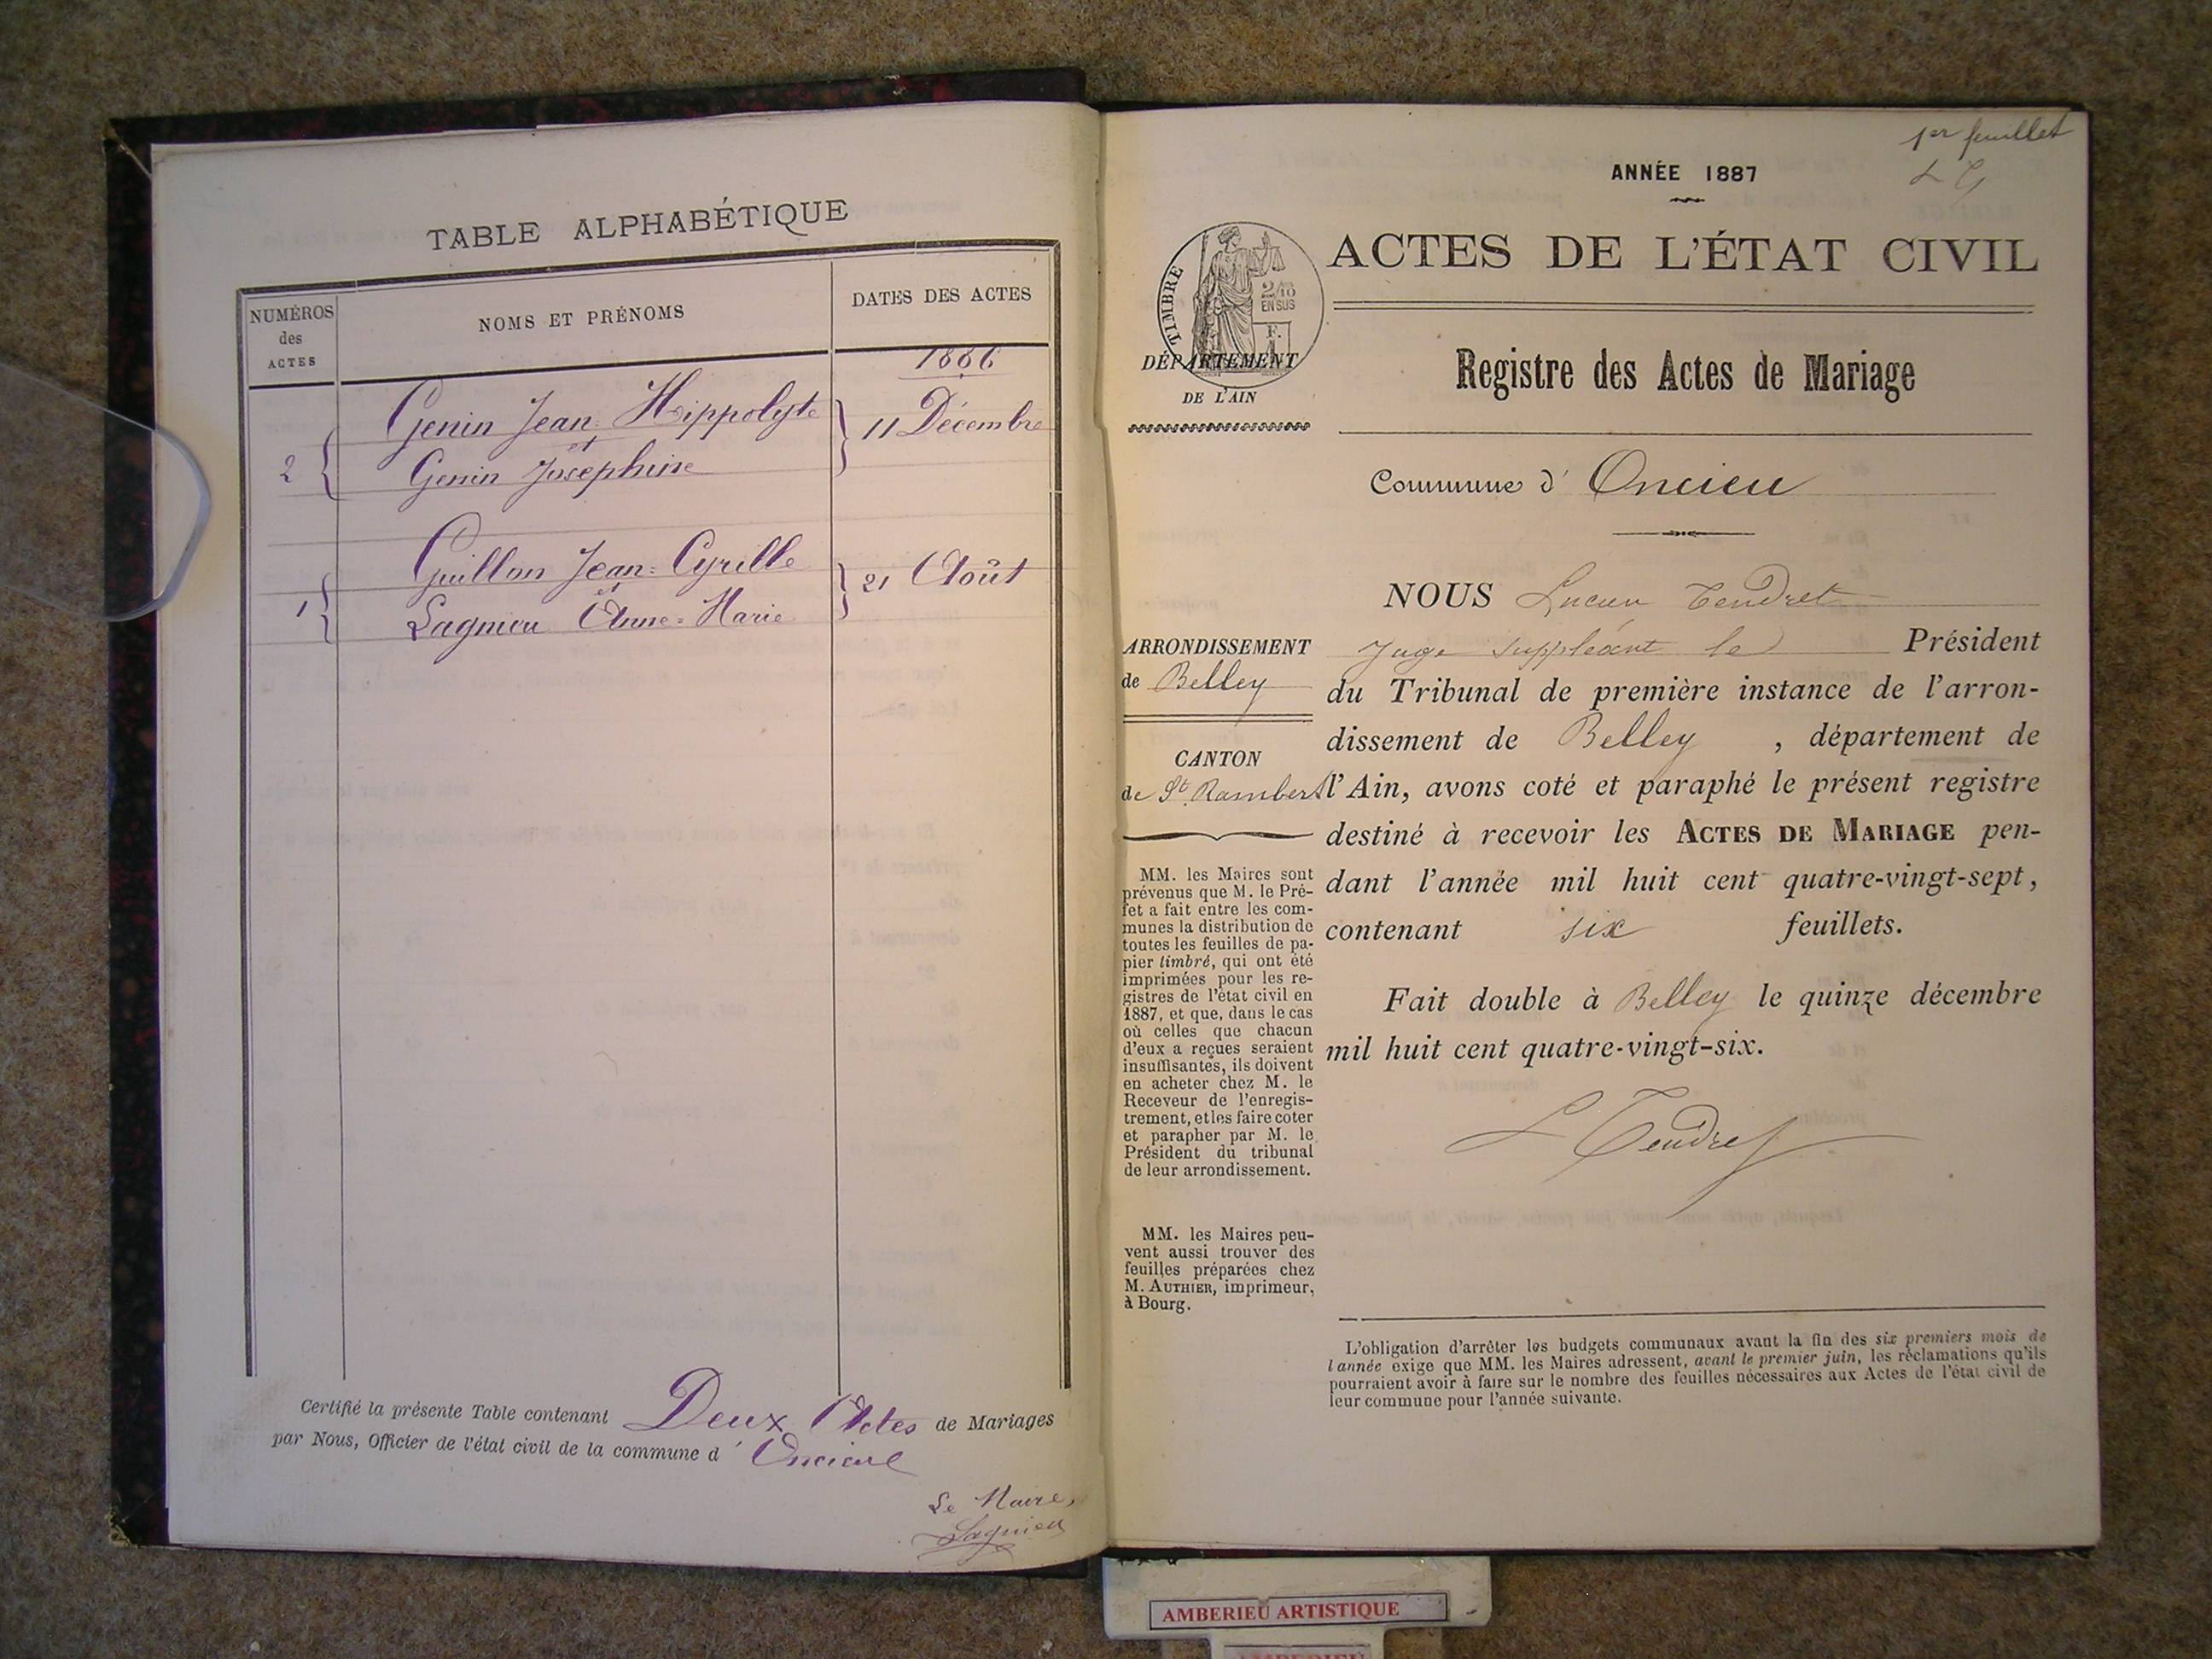 TABLE ALPHABÉTIQUE
NUMÉROS
des
ACTES
NOMS ET PRÉNOMS
DATES DES ACTES
1886
Genin Jean=Hippolyte
et
2
Genin Josephine
11 Décembre
Guillon Jean=Cyrille
et
1
Lagnieu Anne=Marie
21 Août
Certifié la présente Table contenant Deux Actes de Mariages
par Nous, Officier de l'état civil de la commune d' Oncieu
Le Maire,
Lagnieu
1er feuillet
L T
ANNÉE 1887
TIMBRE
2/10
EN SUS
F.
ACTES DE L'ÉTAT CIVIL
DÉPARTEMENT
DE L'AIN
Registre des Actes de Mariage
Commune d' Oncieu
ARRONDISSEMENT
de Belley
CANTON
de St. Rambert
MM. les Maires sont
prévenus que M. le Pré-
fet a fait entre les com-
munes la distribution de
toutes les feuilles de pa-
pier timbré, qui ont été
imprimées pour les re-
gistres de l'état civil en
1887, et que, dans le cas
où celles que chacun
d'eux a reçues seraient
insuffisantes, ils doivent
en acheter chez M. le
Receveur de l'enregis-
trement, et les faire coter
et parapher par M. le
Président du tribunal
de leur arrondissement.
MM. les Maires peu-
vent aussi trouver des
feuilles préparées chez
M. AUTHIER, imprimeur,
à Bourg.
NOUS Lucien Tendret
Juge suppléant le Président
du Tribunal de première instance de l'arron-
dissement de Belley , département de
l'Ain, avons coté et paraphé le présent registre
destiné à recevoir les ACTES DE MARIAGE pen-
dant l'année mil huit cent quatre-vingt-sept,
contenant six feuillets.
Fait double à Belley le quinze décembre
mil huit cent quatre-vingt-six.
L Tendret
L'obligation d'arrêter les budgets communaux avant la fin des six premiers mois de
l'année exige que MM. les Maires adressent, avant le premier juin, les réclamations qu'ils
pourraient avoir à faire sur le nombre des feuilles nécessaires aux Actes de l'état civil de
leur commune pour l'année suivante.
AMBERIEU ARTISTIQUE
AMBERIEU